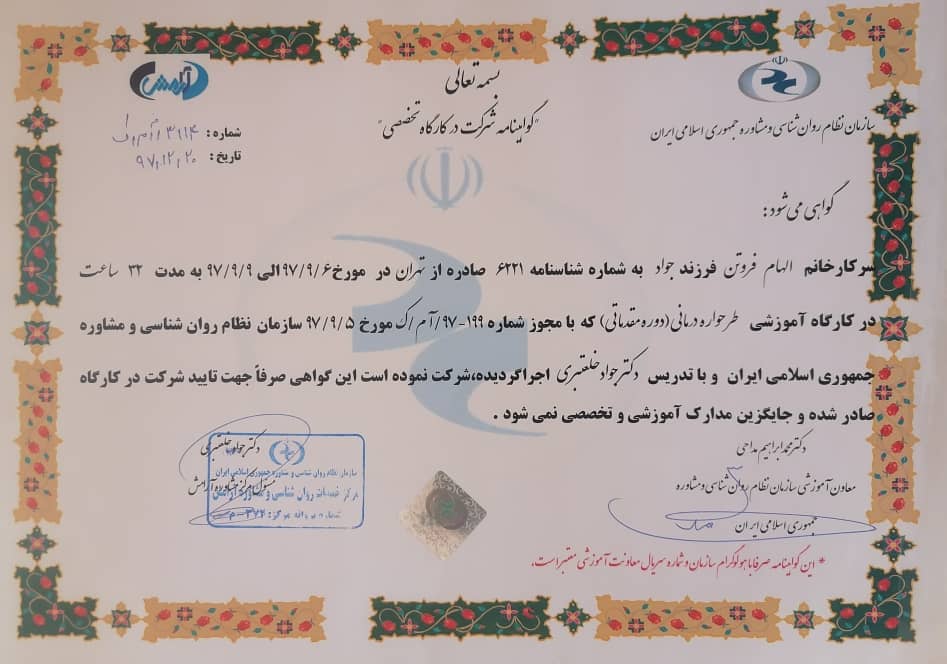 بسمه تعالی
"گواهینامه شرکت در کارگاه تخصصی"
سازمان نظام روان شناسی و مشاوره جمهوری اسلامی ایران
آرامش
شماره : ۳۱۱۴
تاریخ : ۹۷,۱۲,۲۰
گواهی می شود :
سرکارخانم الهام فروتن فرزند جواد به شماره شناسنامه ۶۲۲۱ صادره از تهران در مورخ۹۷/۹/۶ الی ۹۷/۹/۹ به مدت ۳۲ ساعت
در کارگاه آموزشی طرحواره درمانی (دوره مقدماتی) که با مجوز شماره ۱۹۹-۹۷/آ م/ک مورخ ۹۷/۹/۵ سازمان نظام روان شناسی و مشاوره
جمهوری اسلامی ایران و با تدریس دکتر جواد خلعتبری اجراگردیده،شرکت نموده است این گواهی صرفاً جهت تایید شرکت در کارگاه
صادر شده و جایگزین مدارک آموزشی و تخصصی نمی شود .
دکتر محمد ابراهیم مداحی
معاون آموزشی سازمان نظام روان شناسی و مشاوره
جمهوری اسلامی ایران
دکتر جواد خلعتبری
مسئول مرکز مشاوره آرامش
سازمان نظام روان شناسی و مشاوره جمهوری اسلامی ایران
مرکز خدمات روان شناسی و مشاوره آرامش
شماره پروانه مرکز: ۳۷۲-م
* این گواهینامه صرفا با هولوگرام سازمان و شماره سریال معاونت آموزشی معتبر است.